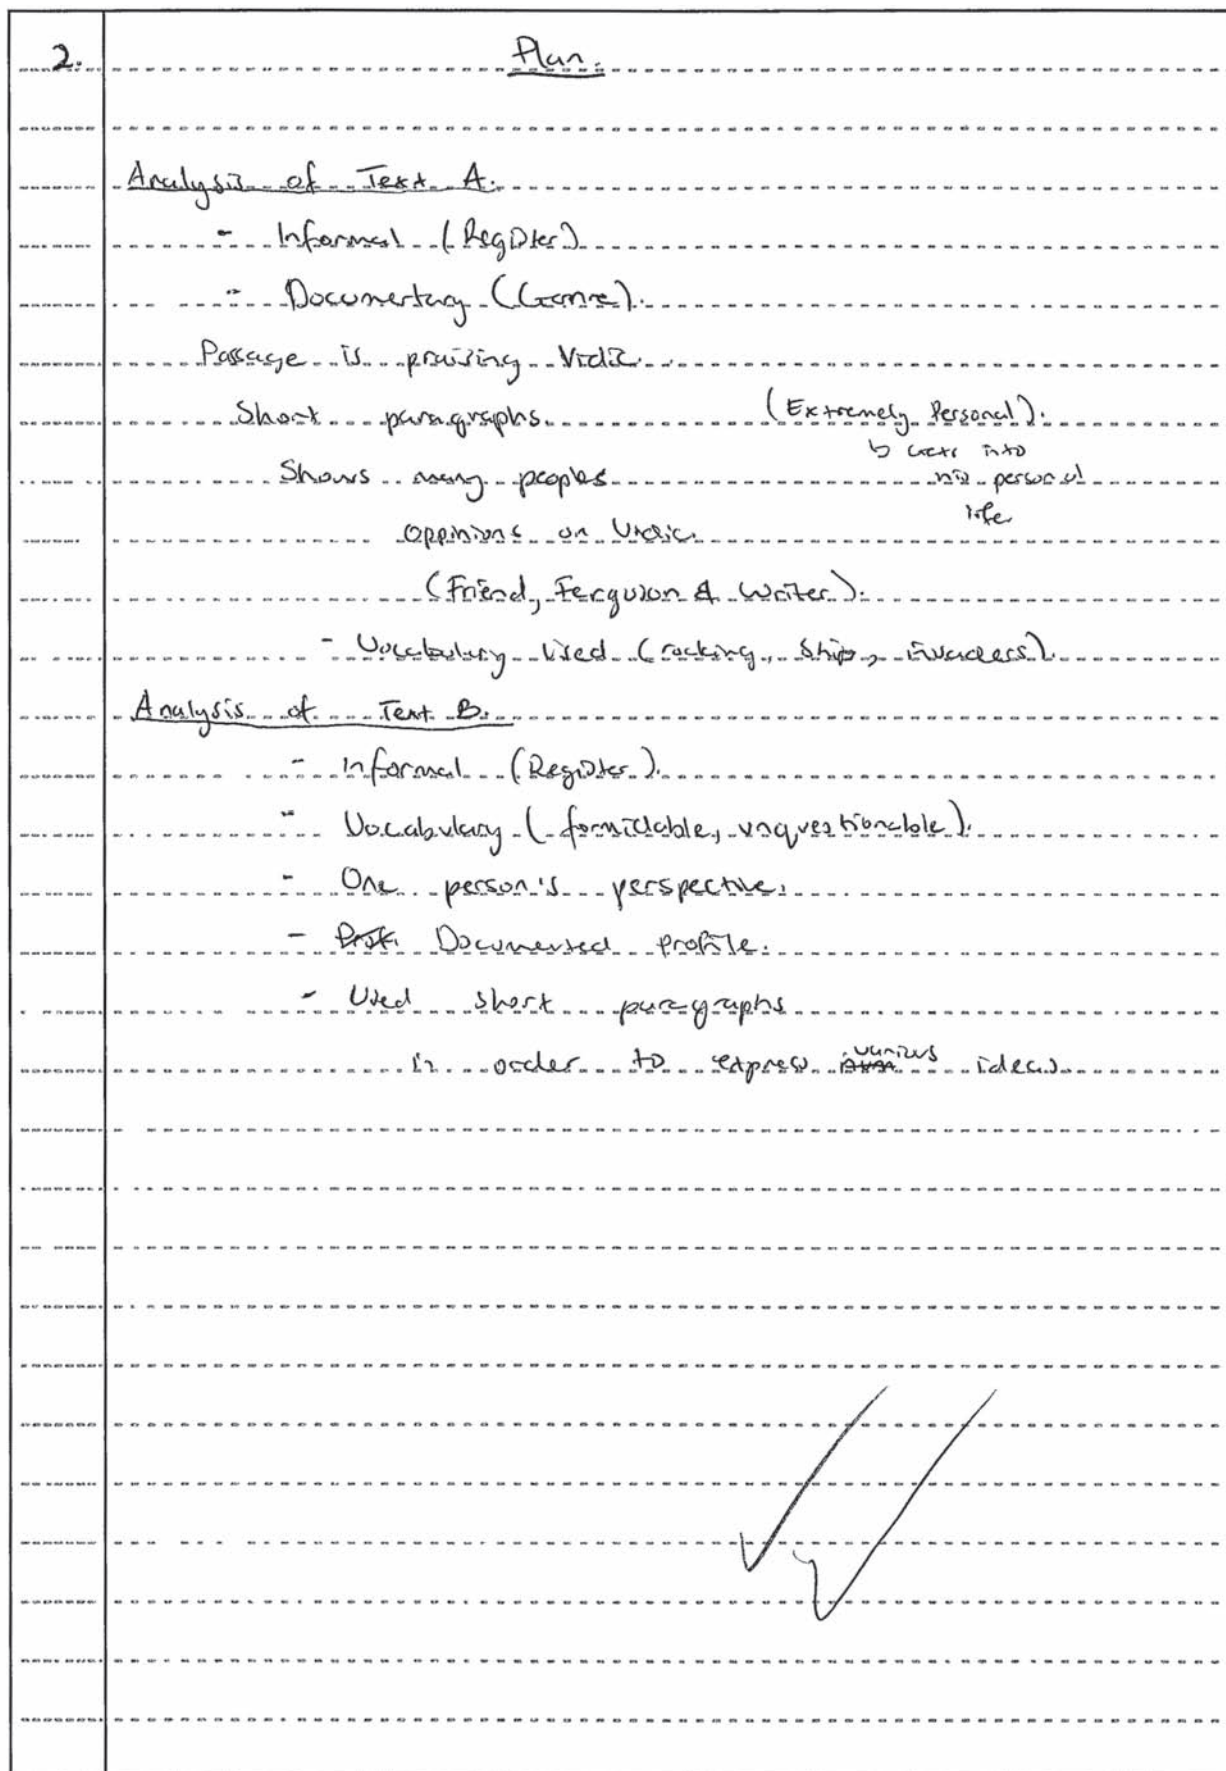 2. Plan.
Analysis of Text A.
- Informal (Register)
- Documentary (Genre).
Passage is praising Vidic.
Short paragraphs. (Extremely Personal).
↳ Gets into
his personal
life
Shows many peoples
oppinions on Vidic.
(Friend, Ferguson & Writer).
- Vocabulary Used (rocking, ship, invaders).
Analysis of Text B.
- Informal (Register).
- Vocabulary (formidable, unquestionable).
- One person's perspective.
- Documented profile.
- Used short paragraphs
in order to express various ideas.